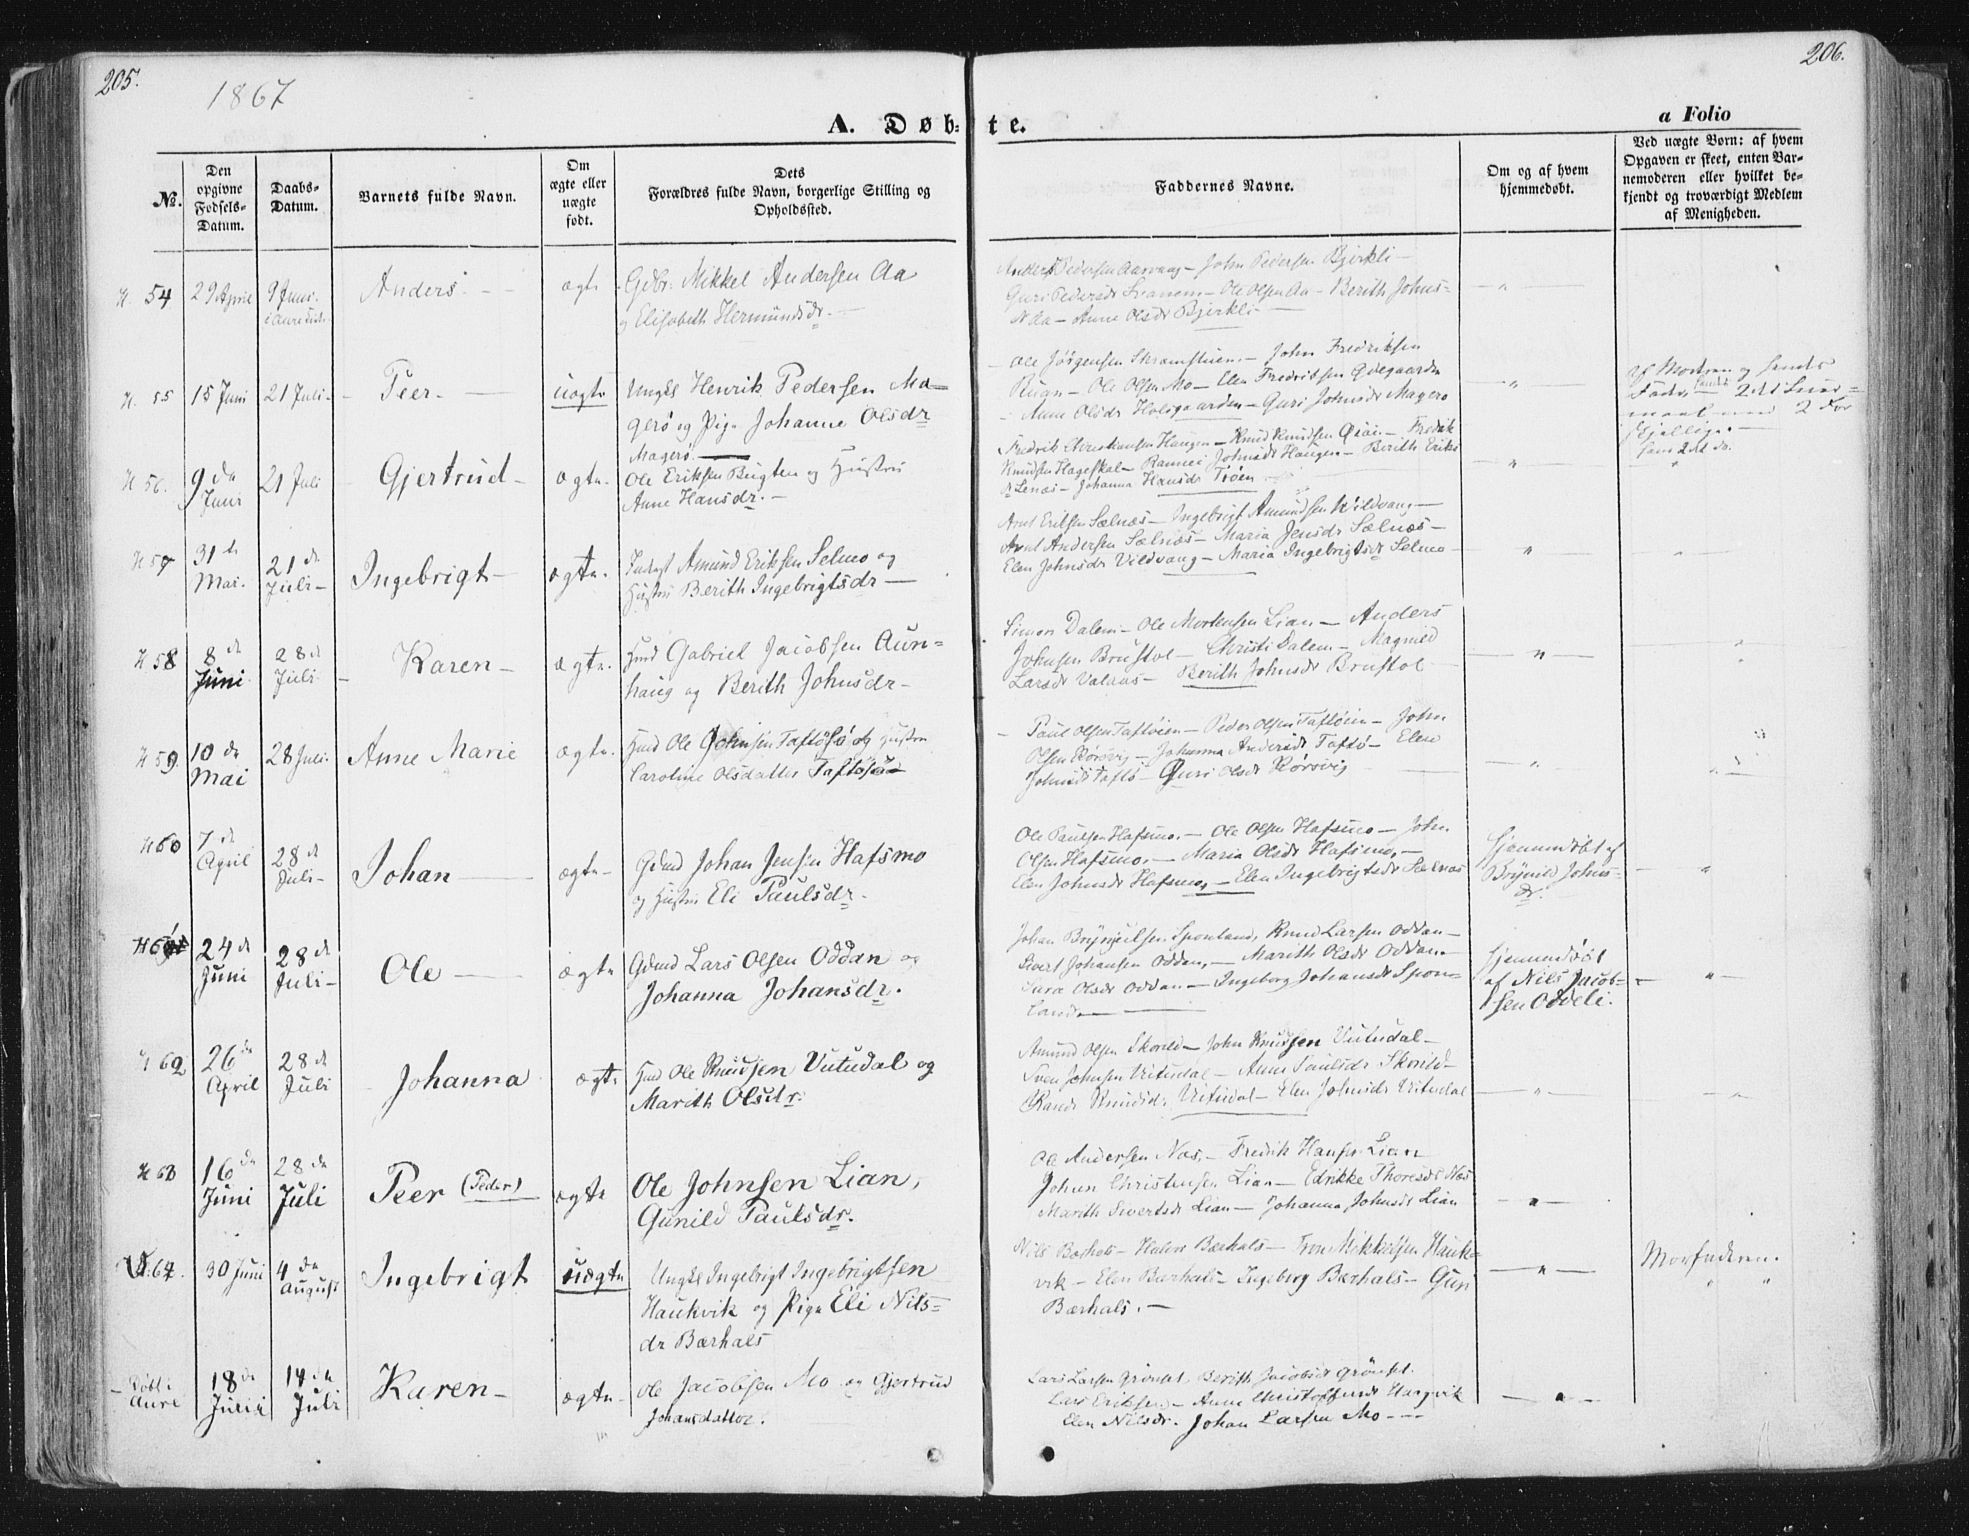 205.
206.
1867
A. Døbte.
a Folio
No.
Den opgivne Fødsels-Datum.
Daabs-Datum.
Barnets fulde Navn.
Om ægte eller uægte født.
Dets Forældres fulde Navn, borgerlige Stilling og Opholdssted.
Faddernes Navne.
Om og af hvem hjemmedøbt.
Ved uægte Børn: af hvem Opgaven er skeet, enten Barnemoderen eller hvilket bekjendt og troværdigt Medlem af Menigheden.
54 29 April 9 Juni Anders ægte Gdbr. Mikkel Andersen Aa
og Elisabeth Hermundsdr.
Anders Pedersen Aarvaag - John Pedersen Bjerkli -
Guri Pedersdr - Ole Olsen Aa - Berith Johns-
Anne Olsdr Bjerkli
55 15 Juni 21 Juli - Peer - uægte Ungkl Henrik Pedersen Ma-
gerø og Pige Johanne Olsdr
Magerø.
Ole Jørgensen - John Fredriksen
Ruan - Ole Olsen Mo - Elen Fredriksen
Anne Olsdr Holsgaarden - Guri Johnsdr Magerø
56. 9de Juni 21 Juli Gjertrud - ægte Ole Eriksen Bugten og Hustru
Anne Hansdr. -
Fredrik Christiansen Haugen - Knud Knudsen - Fredrik
Knudsen Hageskal - Johnsdr Haugen - Berith Eriks
dr Lenæs - Johanna Hansdr Trøen
57 31te Mai. 21de Juli - Ingebrigt - ægte. Amund Eriksen Selmo og
Hustru Berith Ingebrigtsdr -
Arnt Eriksen Sælnæs - Ingebrigt Amundsen Vildvang -
Arnt Andersen Sælnæs - Maria Jensdr Sælnæs -
Elen Johnsdr Vildvang - Maria Ingebrigtsdr Selmo
58 8de Juni 28de Juli Karen - ægte. Hmd Gabriel Jacobsen Aun-
haug og Berith Johnsdr -
Simon Dalem - Ole Mortensen Lian - Anders
Johnsen Brustol - Christi Dalem - Magnild
Larsdr Valaas - Berith Johnsdr Brustol
59 10de Mai 28 Juli. Anne Marie ægte. Hmd Ole Johnsen Taftø og Hustru
Caroline Olsdatter Taftø
Paul Olsen Taftøien - Peder Olsen Taftøien - John
Olsen Rørovig - Johanna Andersdr Taftø - Elen
Johnsdr Taftø - Guri Olsdr Rørovig
60 7de April 28de Juli - Johan ægte - Gdmd Johan Jensen Hafsmo
og Hustru Eli Paulsdr.
Ole Paulsen Hafsmo. - Ole Olsen Hafsmo - John
Olsen Hafsmo. - Maria Olsdr Hafsmo. -
Elen Johnsdr Hafsmo, - Elen Ingebrigtsdr Sælnæs
Hjemmedøbt af
Brynild Johns-
dr.
24de Juni 28de Juli - Ole ægte Gdmd Lars Olsen Oddan og
Johanna Johansdr.
Johan Brynjulfsen Sponland, Knud Larsen Oddan -
Sivert Johansen Oddan, - Marith Olsdr Oddan.
Sara Olsdr Oddan - Ingeborg Johansdr Spon-
land.
Hjemmedøbt
af Nils Jacob-
sen Oddeli.
62 26de April 28de Juli Johanna ægte Hmd Ole Knudsen Vutudal og
Marith Olsdr.
Amund Olsen Skorild - John Knudsen Vutudal -
Sven Johnsen Vutudal - Anne Paulsdr Skorild -
Randi Knudsdr. Vutudal - Elen Johnsdr Vutudal
63 16de Juni 28de Juli Peer (Peder) ægte Ole Johnsen Lian,
Gunild Paulsdr.
Ole Andersen Næs, - Fredrik Hansen Lian
Johan Christensen Lian - Thoresdr Næs
Marith Sivertsdr Lian - Johanna Johnsdr Lian
64. 30 Juni 4de August Ingebrigt uægte Ungkl Ingebrigt Ingebrigtsen
Haukvik og Pige Eli Nils-
dr Bærhals
Nils Bærhals - Halvor Bærhals - Mikkelsen Hauk-
vik - Elen Bærhals - Ingeborg Bærhals - Guri
Bærhals. -
Morfaderen.
Døbt i Aure 18de Juni 14de Juli Karen - ægte - Ole Jacobsen Mo og Gjertrud
Johansdatter.
Lars Larsen - Berith Jacobsdr
Lars Eriksen - Anne Christoffersdr
Elen Nilsdr. Johan Larsen Mo -